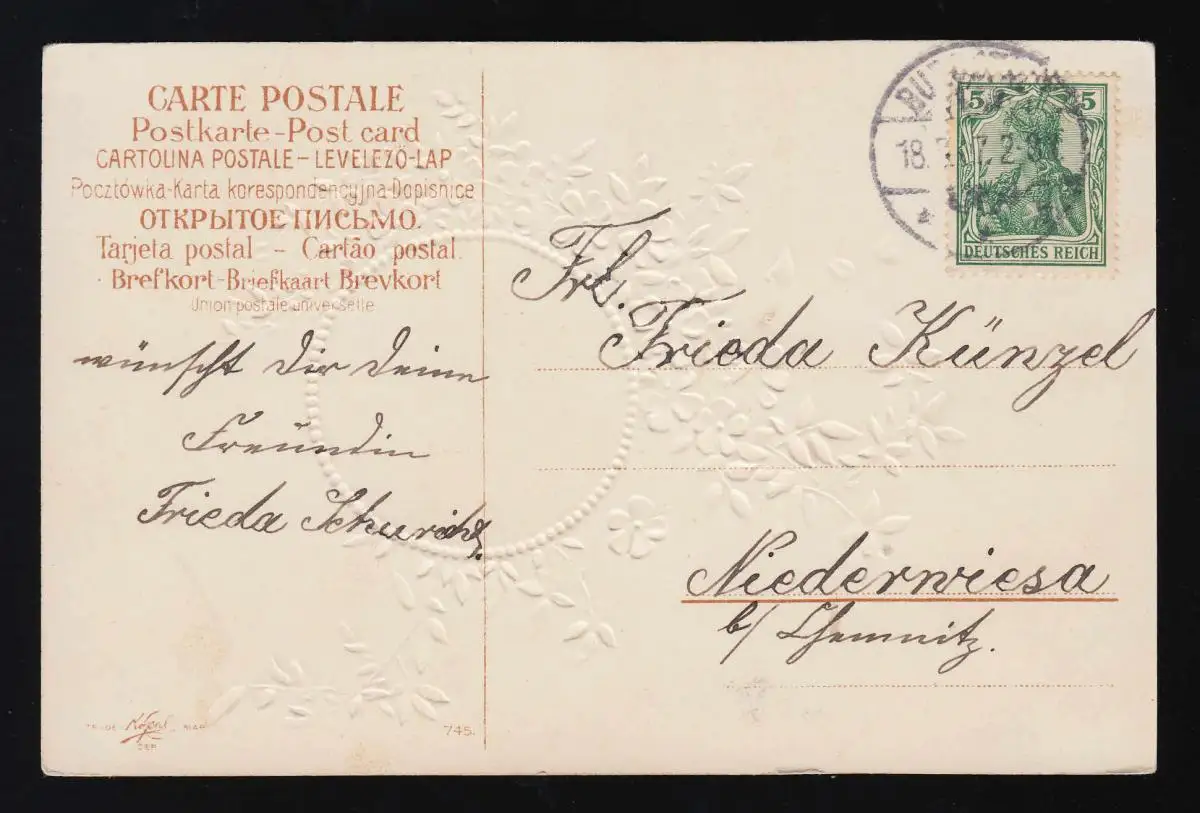 CARTE POSTALE
Postkarte-Post card
CARTOLINA POSTALE-LEVELEZŐ-LAP
Pocztówka-Karta korespondencyjna-Dopisnice
ОТКРЫТОЕ ПИСЬМО.
Tarjeta postal - Cartão postal.
Brefkort-Briefkaart Brevkort
Union postale universelle
wünscht Dir Deine
Freundin
Frieda
745.
18.
5 5
DEUTSCHES REICH
Frl.
Frieda Künzel
Niederwiesa
b/ Chemnitz.